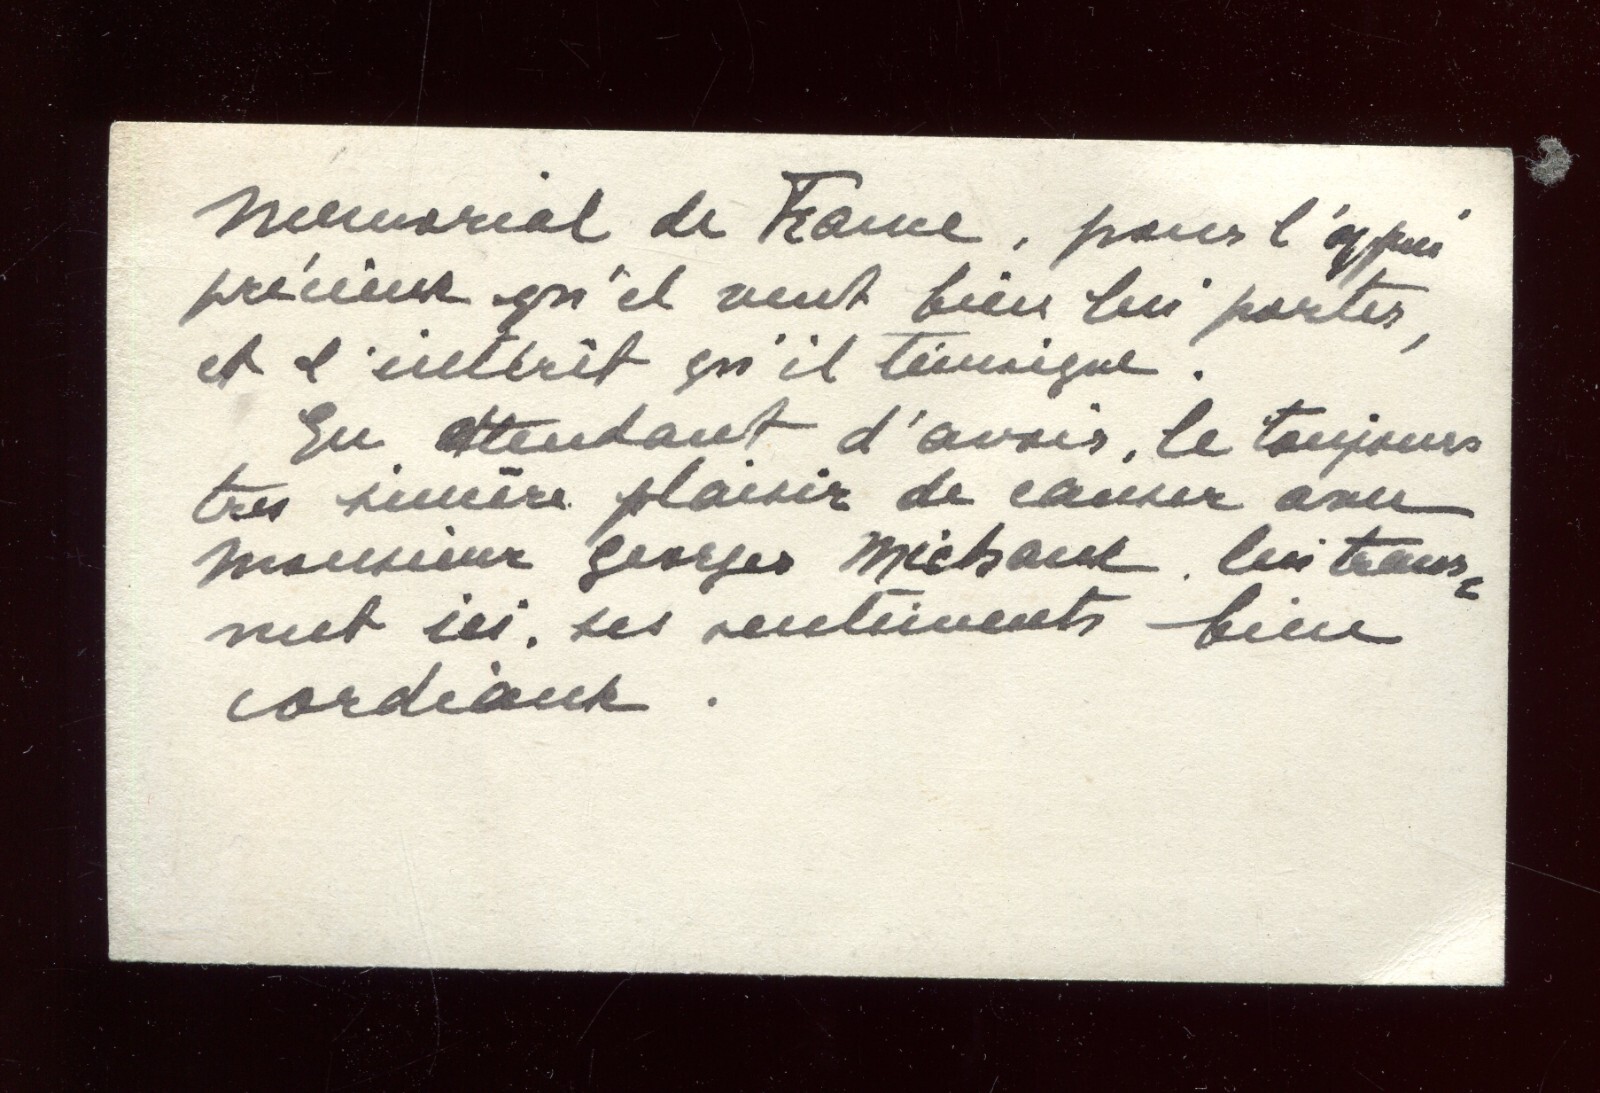 Mémorial de France, pour l'appui
précieux qu'il veut bien lui porter,
et l'intérêt qu'il témoigne.
En attendant d'avoir, le toujours
très sincère plaisir de causer avec
Monsieur Georges Michaux. lui trans=
met ici, ses sentiments bien
cordiaux.